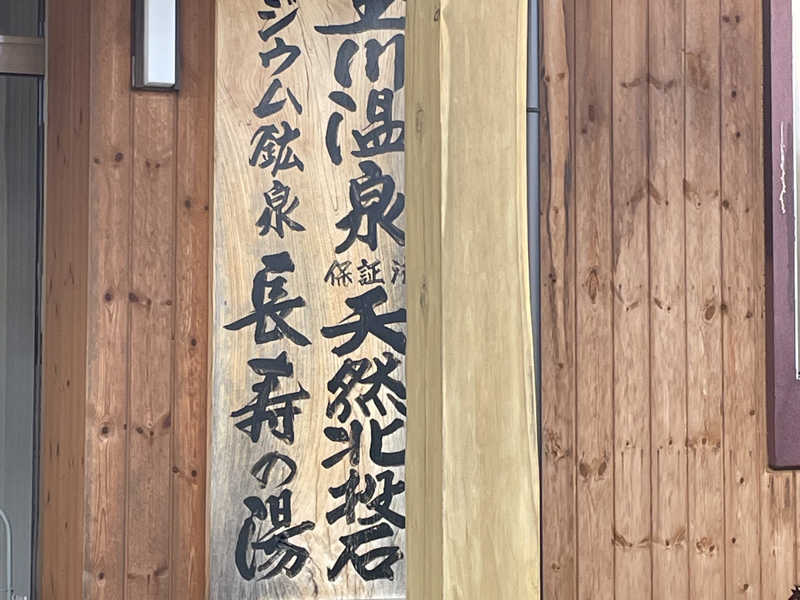 川温泉
保証
天然北投石
ジウム鉱泉
長寿の湯